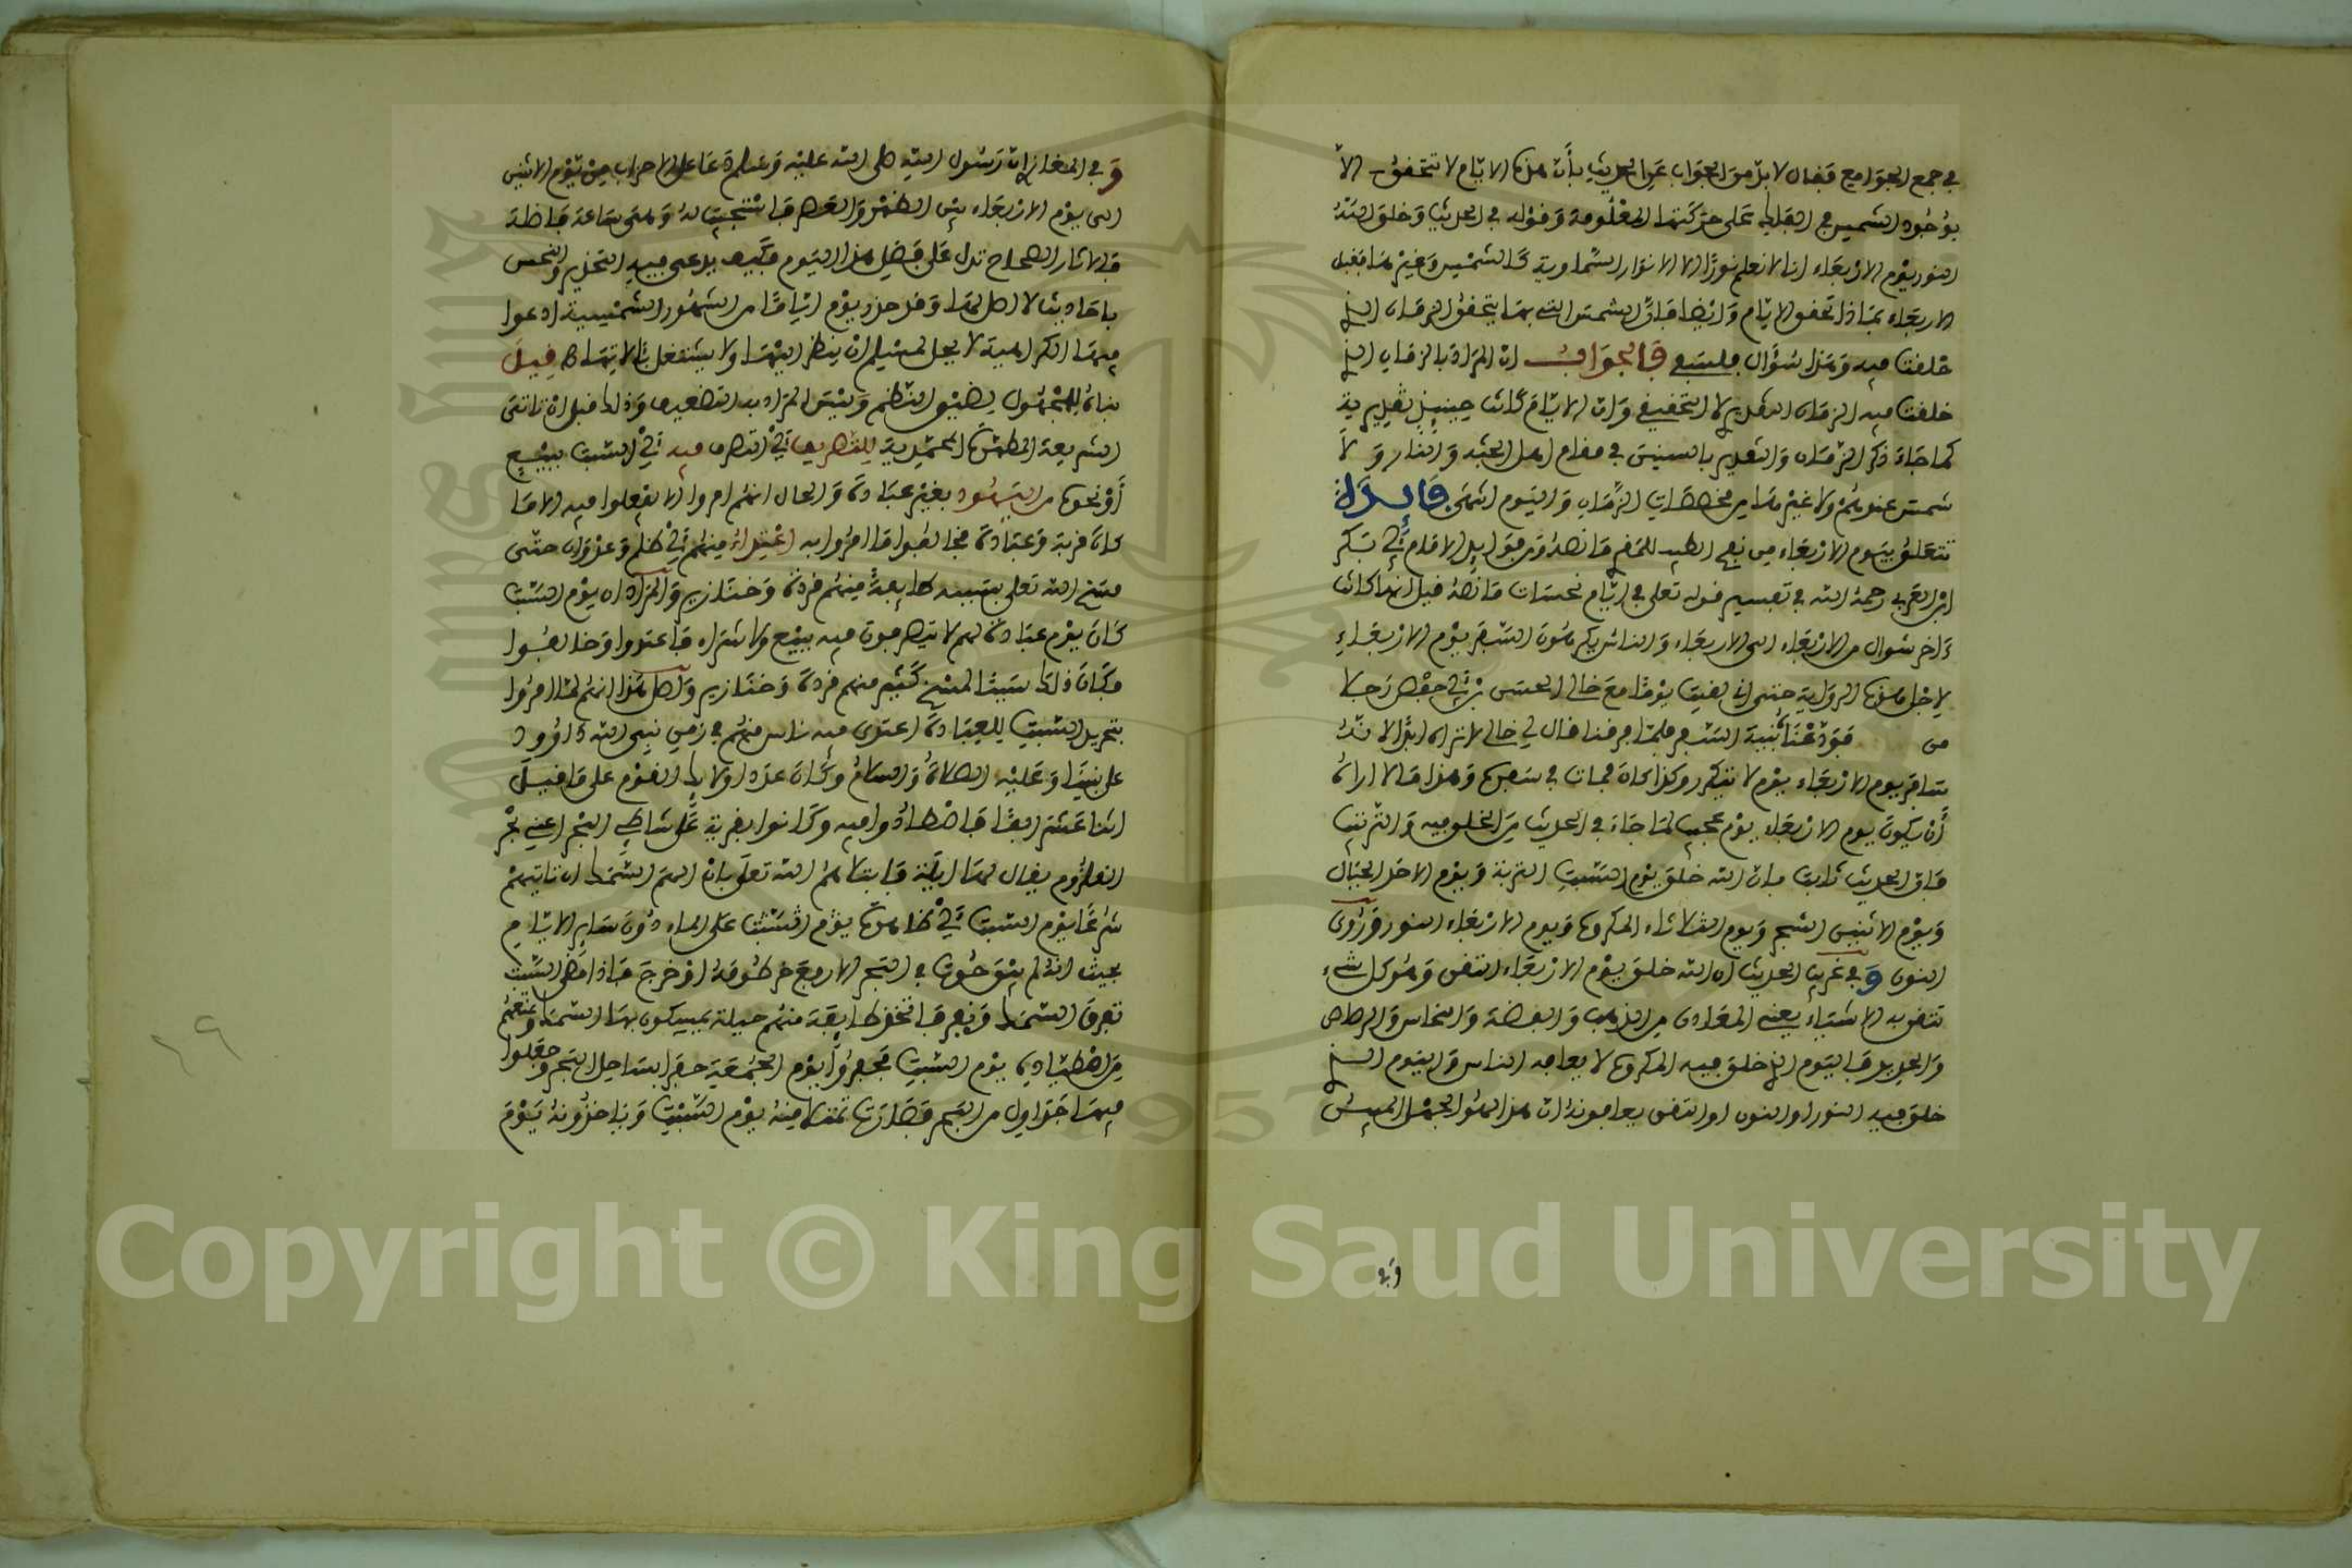 في جمع الجوامع فقال لا بد من الجواب عن الحديث بأن هذه الايام لا تتحقق الا
بوجود الشمس في الفلك على حركتها المعلومة وقوله في الحديث وخلق الله
النور يوم الاربعاء انا لا نعلم نورا الا الانوار السماوية كالشمس وغيرها فقبل
الاربعاء بماذا تحقق الايام وايضا فان الشمس التي بها يتحقق الزمان الذي
خلقت فيه وهذا سؤال فلسفي فالجواب ان المراد بالزمان الذي
خلقت فيه الزمان التقديري لا التحقيقي وان الايام كانت حينئذ تقديرية
كما جاء ذكر الزمان والتقدير بالسنين في مقام اهل الجنة والنار ولا
شمس عندهم ولا غيرها من مخصصات الزمان واليوم اسمى فايدة
تتعلق بيوم الاربعاء من نفح الطيب للمقري ما نصه ومن فوايد الامام ابي بكر
ابن العربي رحمه الله في تفسير قوله تعلى في ايام نحسات ما نصه قيل انها كانت
ءاخر شوال من الاربعاء الى الاربعاء والناس يكرهون السفر يوم الاربعاء
لاجل هذه الرواية حتى اني لقيت يوما مع خالي الحسن بن ابي حفص رجلا
من فودعنا بنية السفر فلما فرقنا قال لي خالي لا تراه ابدا لانه
سافر يوم الاربعاء يوم لا يتكرر وكذا كان فمات في سفره وهذا ما لا اراه
أن يكون يوم الاربعاء يوم عجيب لما جاء في الحديث من الخلق فيه والترتيب
فان الحديث ثابت بان الله خلق يوم السبت التربة ويوم الاحد الجبال
ويوم الاثنين الشجر ويوم الثلاثاء المكروه ويوم الاربعاء النور وروي
النون وفي غريب الحديث ان الله خلق يوم الاربعاء التقن وهو كل شيء
تتقن به الاشياء يعني المعادن من الذهب والفضة والنحاس والرصاص
والحديد فاليوم الذي خلق فيه المكروه لا يعافه الناس واليوم الذي
خلق فيه النور او النون او التقن يعافونه ان هذا لهو الجهل المبين
وفي
وفي المغازي ان رسول الله صلى الله عليه وسلم دعا على الاحزاب من يوم الاثنين
الى يوم الاربعاء بين الظهر والعصر فاستجيب له وهي ساعة فاضلة
فالاثار الصحاح تدل على فضل هذا اليوم فكيف يدعى فيه التحذير والنحس
باحاديث لا اصل لها وقد حذر يوم اياما من الشهور الشمسية ادعوا
فيها الكراهية لا يحل لمسلم ان ينظر اليها ولا يشتغل بالاتها قيل
بناه للمجهول لضيق النظم وليس المراد به التضعيف وذلك قبل ان تاتي
الشريعة المطهرة المحمدية للتصريف أي التصرف فيه أي السبت ببيع
أو نحوه من اليهود بغير عبادة والحال انهم امروا الا يفعلوا فيه الا ما
كان قربة وعبادة فخالفوا ما امروا به اعتداء منهم أي ظلم وعدوان حتى
مسخ الله تعلى بسببه طايفة منهم قردة وخنازير والمراد ان يوم السبت
كان يوم عبادة لهم لا يتصرفون فيه ببيع ولا شراء فاعتدوا وخالفوا
فكان ذلك سببا لمسخ كثير منهم قردة وخنازير واصل هذا انهم لما امروا
بتجريد السبت للعبادة اعتدى فيه ناس منهم في زمن نبي الله داوود
على نبينا وعليه الصلاة والسلام وكان عدد اولايك القوم على ما قيل
اثنا عشر الفا فاصطادوا فيه وكانوا بقرية على شاطئ البحر اعني بحر
القلزوم يقال لها ايلة فابتلاهم الله تعلى بان الهم السمك ان تاتيهم
شرعا يوم السبت أي ظاهرة يوم السبت على الماء دون ساير الايام
بحيث انه لم يبق حوت في البحر الا رفع خرطومه او خرج فاذا مضى السبت
تفرق السمك ولزم قعر البحر طايفة منهم حيلة يمسكون بها السمك ومنعهم
من اصطياده يوم السبت فحفروا يوم الجمعة حفرا بساحل البحر وجعلوا
فيها جداول من البحر فصارت تمتلأ منه يوم السبت وياخذونه يوم
٢٩
Copyright © King Saud University
1957